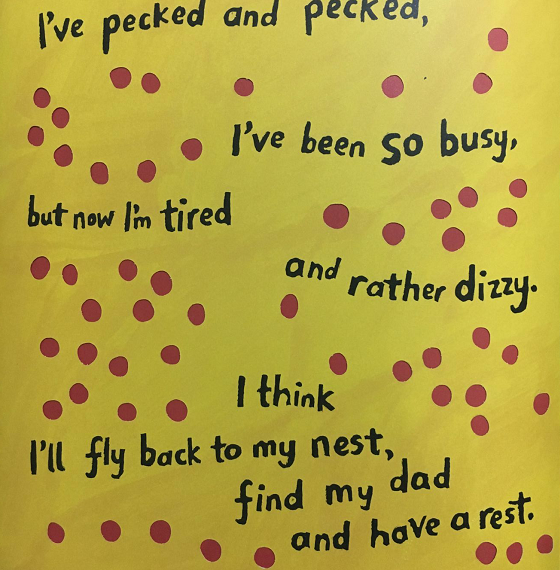 I've pecked and pecked,
I've been so busy,
but now I'm tired
and rather dizzy.
I think
I'll fly back to my nest,
find my dad
and have a rest.